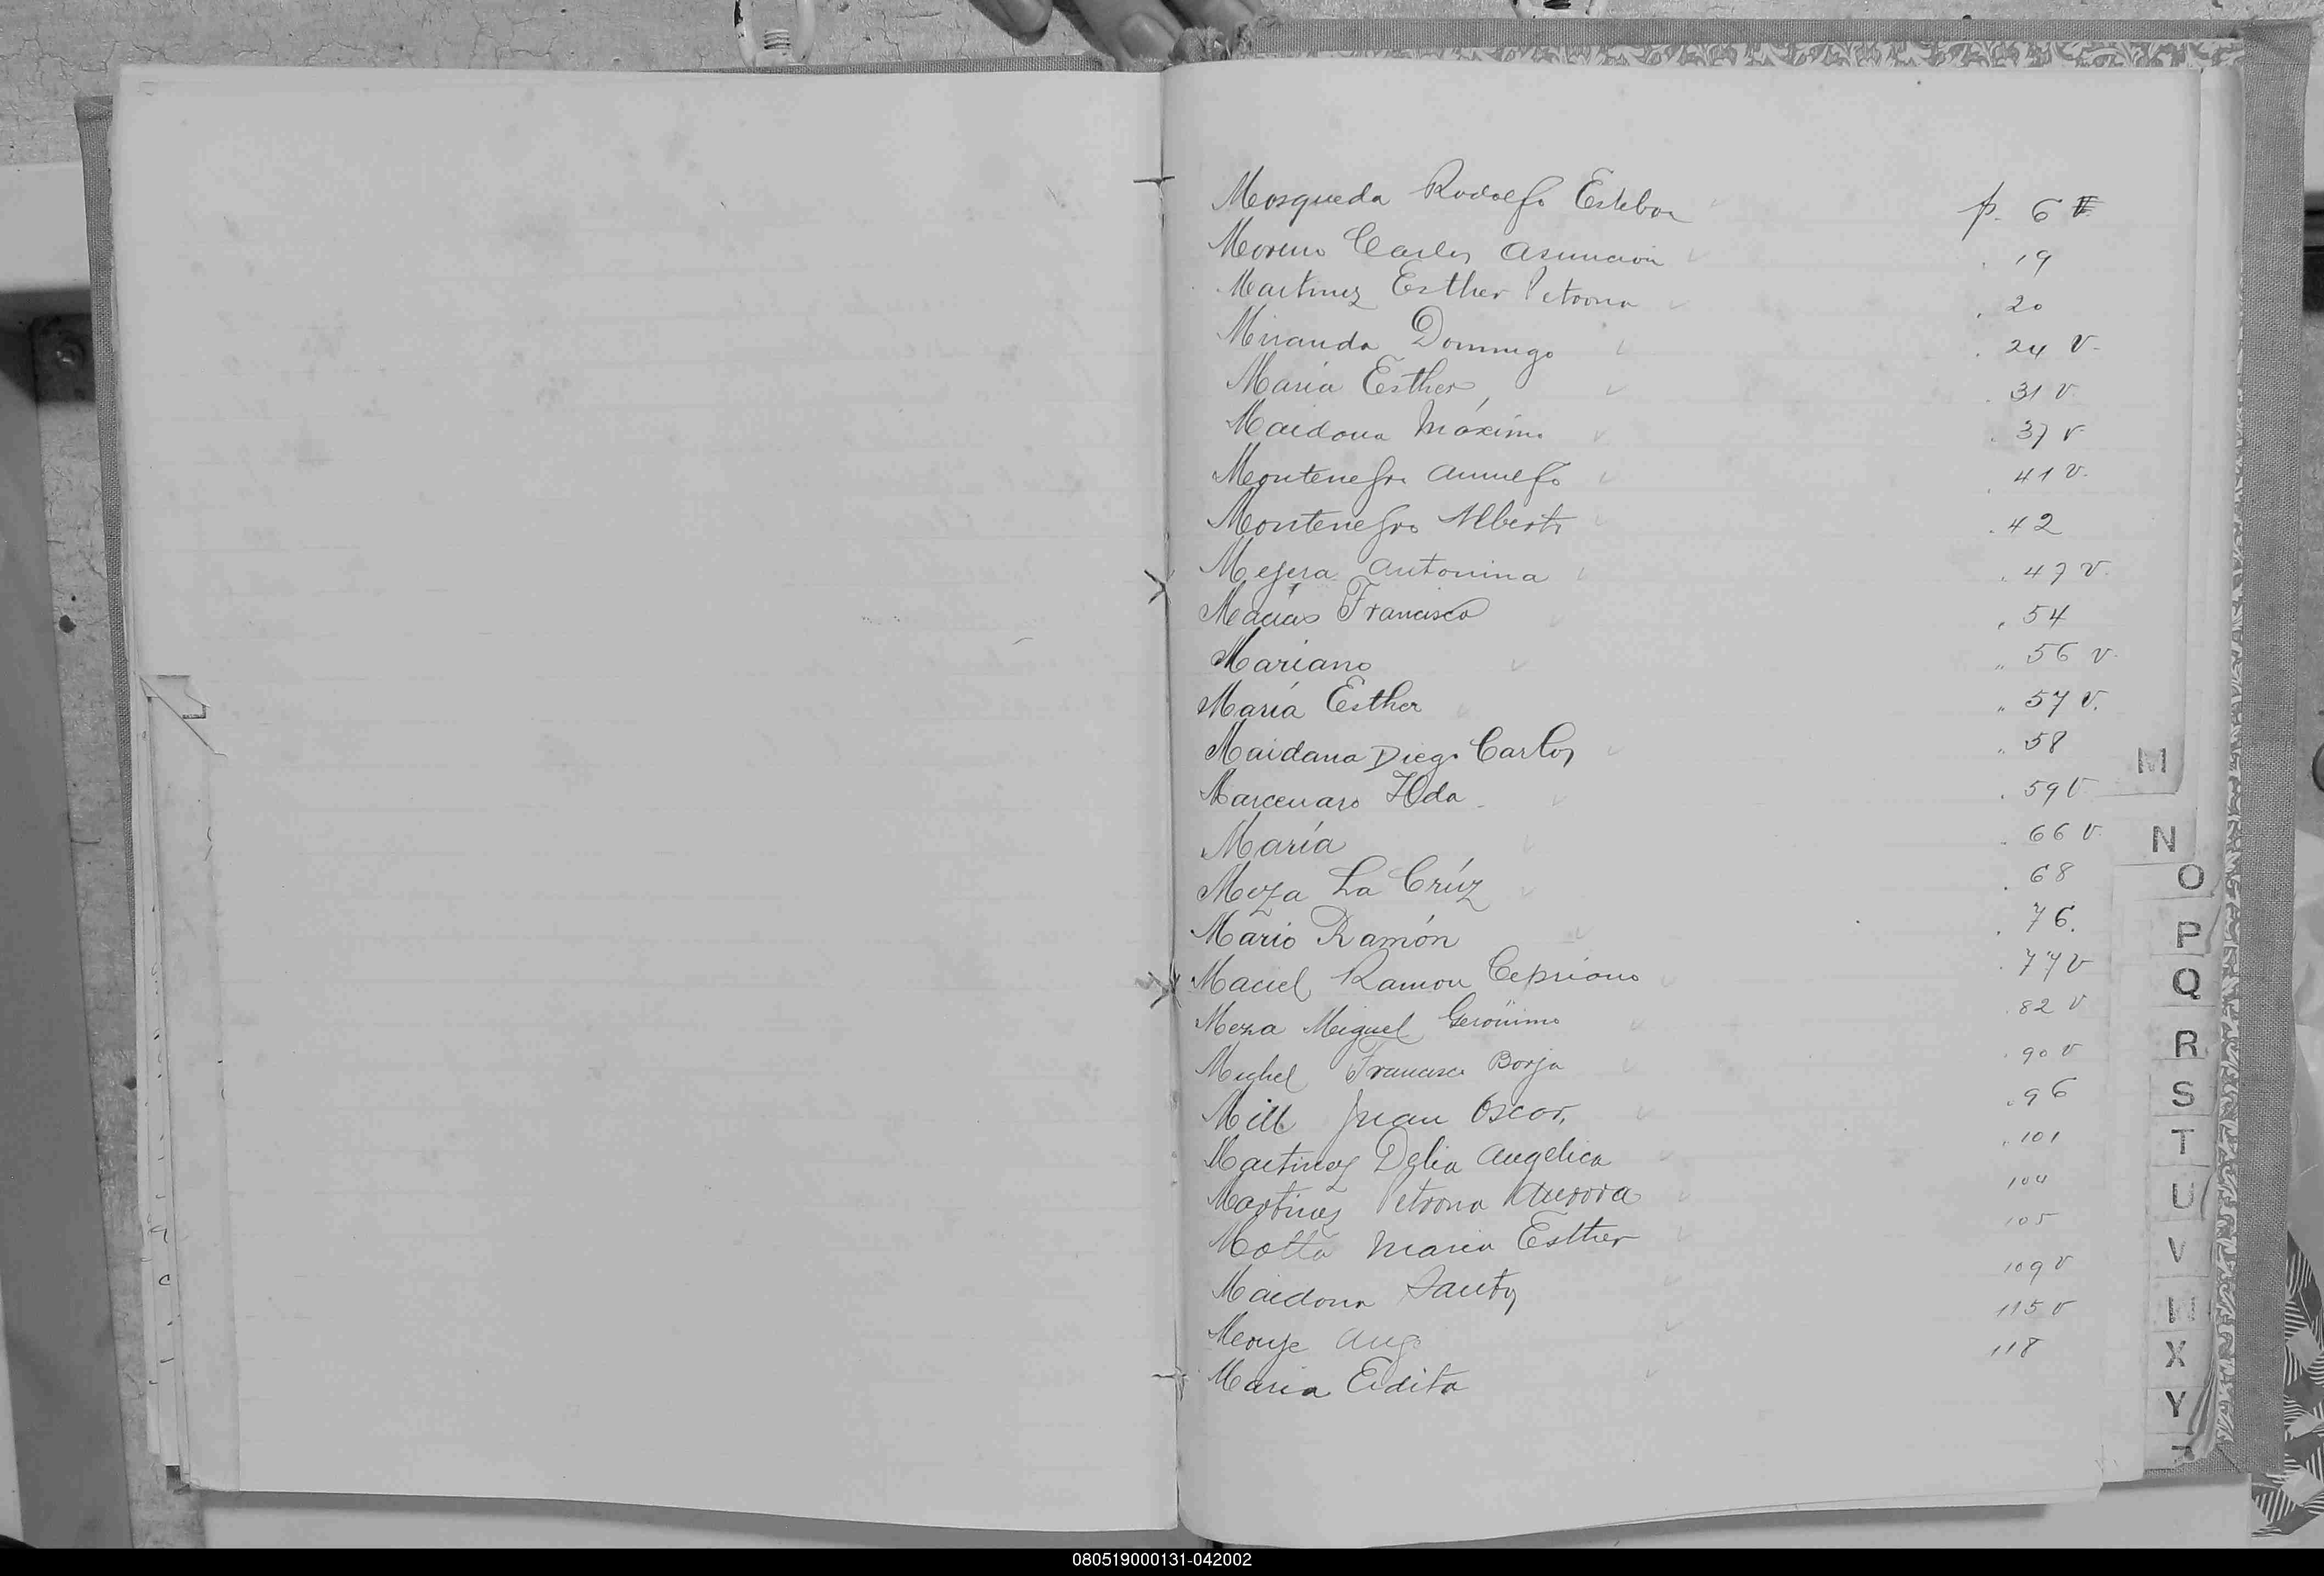 Mosqueda Rodolfo Esteban p. 6 v
Moreno Carlos Asunción 19
Martinez Esther Petrona 20
Miranda Domingo 24 v.
María Esther 31 v.
Maidana Máximo 37 v
Montenegro Arnulfo 41 v.
Montenegro Alberto 42
Antonina 47 v.
Macías Francisco 54
Mariano " 56 v.
María Esther " 57 v.
Maidana Diego Carlos " 58
Marcenaro Ilda 59 v
María 66 v.
Meza La Crúz 68
Mario Ramón 76.
Maciel Ramon Cipriano 77 v
Meza Miguel Gerónimo 82 v
Michel Francisco Borja 90 v
Mill Juan Oscar. 96
Martinez Delia Angelica 101
Martinez Petrona Aurora 104
Motta Maria Esther 105
Maidana Santos 109 v
Monje Ang 115 v
Maria Edita 118
M
N
O
P
Q
R
S
T
U
V
X
Y
080519000131-042002